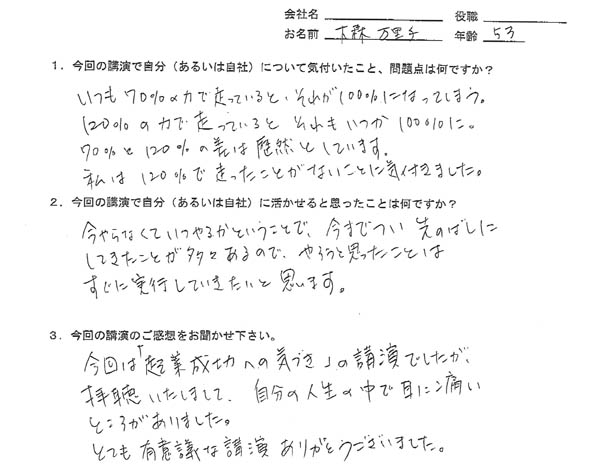 会社名 役職
お名前 大森 万里子 年齢 53
1．今回の講演で自分（あるいは自社）について気付いたこと、問題点は何ですか？
いつも70%の力で走っていると、それが100%になってしまう。
120%の力で走っていると それもいつか100%に。
70%と120%の差は歴然としています。
私は120%で走ったことがないことに気付きました。
2．今回の講演で自分（あるいは自社）に活かせると思ったことは何ですか？
今やらなくていつやるかということで、今までつい先のばしに
してきたことが多々あるので、やろうと思ったことは
すぐに実行していきたいと思います。
3．今回の講演のご感想をお聞かせ下さい。
今回は「起業成功への気づき」の講演でしたが、
拝聴いたしまして、自分の人生の中で耳に痛い
ところがありました。
とても有意議な講演ありがとうございました。